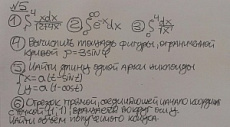 √5
① ∫ xdx 4 ② ∫ e^-x dx ③ ∫ dx
④ Вычислить площадь фигуры, ограниченной
кривой ρ=3sinφ
⑤ Найти длину одной арки циклоиды
{x=a(t-sint)
y=a(1-cost)
⑥ Отрезок прямой, соединяющей начало координат
с точкой (1,1), вращается вокруг оси
Найти объем полученного конуса